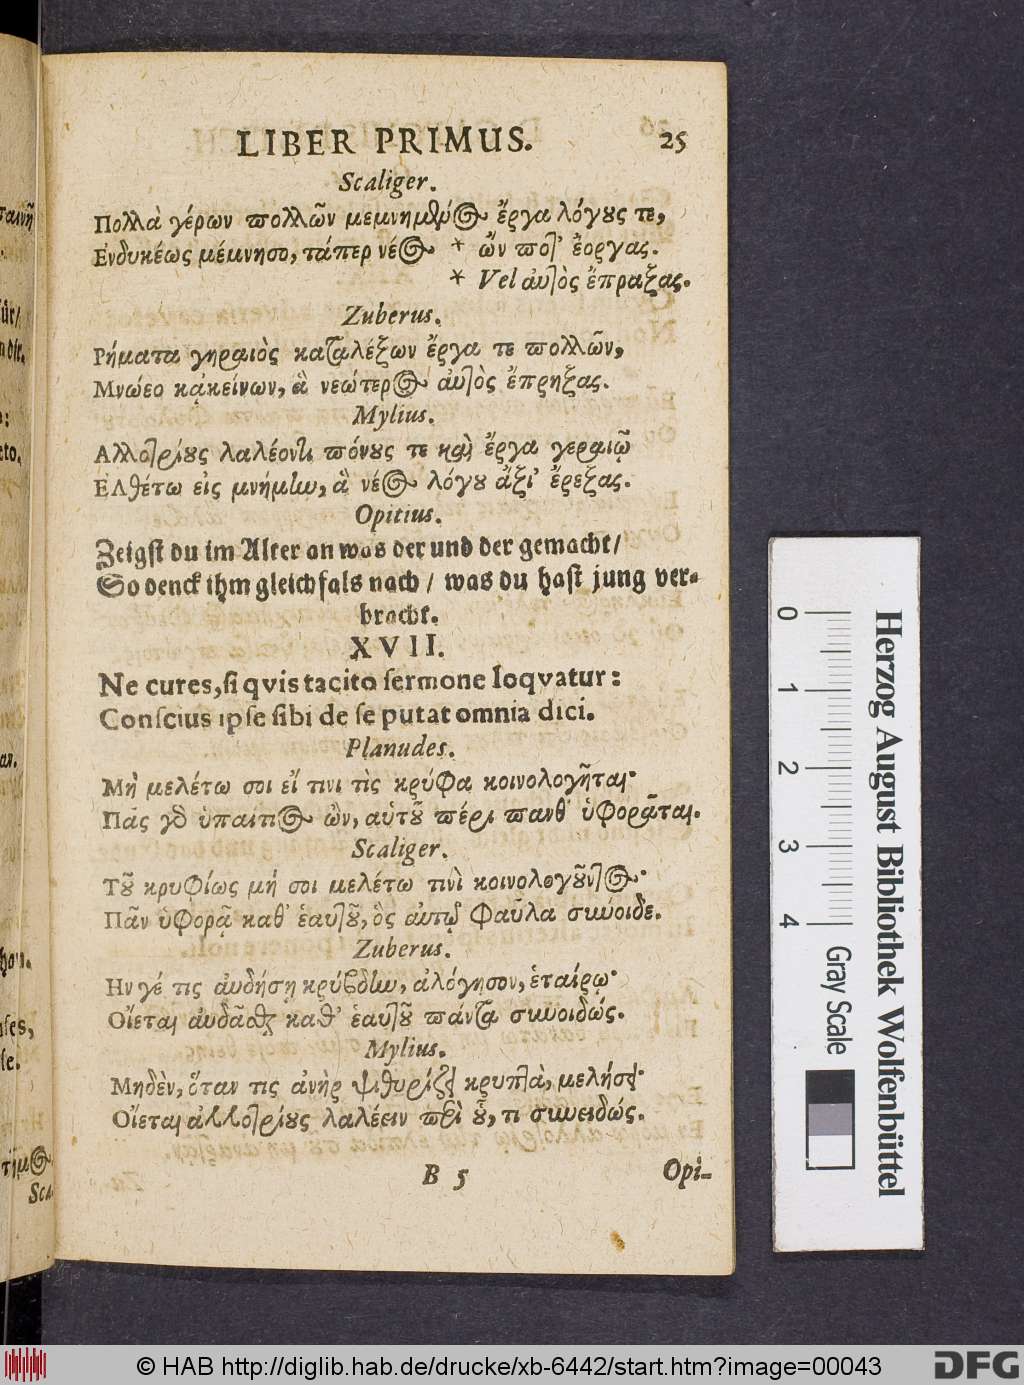 LIBER PRIMUS. 25
Scaliger.
Πολλὰ γέρων πολλῶν μεμνημένος ἔργα λόγους τε,
Ενδυκέως μέμνησο, τάπερ νέος * ὢν ποτ' ἔοργας.
* Vel αὐτὸς ἔπραξας.
Zuberus.
Ρήματα γηραιὸς καταλέξων ἔργα τε πολλῶν,
Μνώεο κᾀκείνων, ἃ νεώτερος αὐτὸς ἔπρηξας.
Mylius.
Αλλοτρίους λαλέοντι πόνους τε καὶ ἔργα γεραιῷ
Ἐλθέτω εἰς μνήμην, ἃ νέος λόγου ἄξι' ἔρεξας.
Opitius.
Zeigst du im Alter an was der und der gemacht/
So denck ihm gleichfals nach / was du hast jung ver-
bracht.
XVII.
Ne cures, si qvis tacito sermone loqvatur:
Conscius ipse sibi de se putat omnia dici.
Planudes.
Μὴ μελέτω σοι εἴ τινι τὶς κρύφα κοινολογῆται·
Πᾶς γὸ ὑπαίτιος ὢν, αὑτοῦ πέρι πανθ' ὑφορᾶται.
Scaliger.
Τοῦ κρυφίως μή σοι μελέτω τινὶ κοινολογοῦντος·
Πᾶν ὑφορᾷ καθ' ἑαυτοῦ, ὃς αὑτῷ φαῦλα σιωύοιδε.
Zuberus.
Ην γέ τις αὐδήσῃ κρύβδην, ἀλόγησον, ἑταίρῳ·
Οἴεται αὐδᾶσθαι καθ' ἑαυτοῦ πάντα σιωυοιδώς.
Mylius.
Μηδὲν, ὅταν τις ἀνὴρ ψιθυρίζει κρυπτὰ, μελήσει·
Οἴεται ἀλλοτρίους λαλέειν περὶ οὗ, τι σιωυειδώς.
B 5 Opi-
Herzog August Bibliothek Wolfenbüttel
0 1 2 3 4 Gray Scale
© HAB http://diglib.hab.de/drucke/xb-6442/start.htm?image=00043
DFG